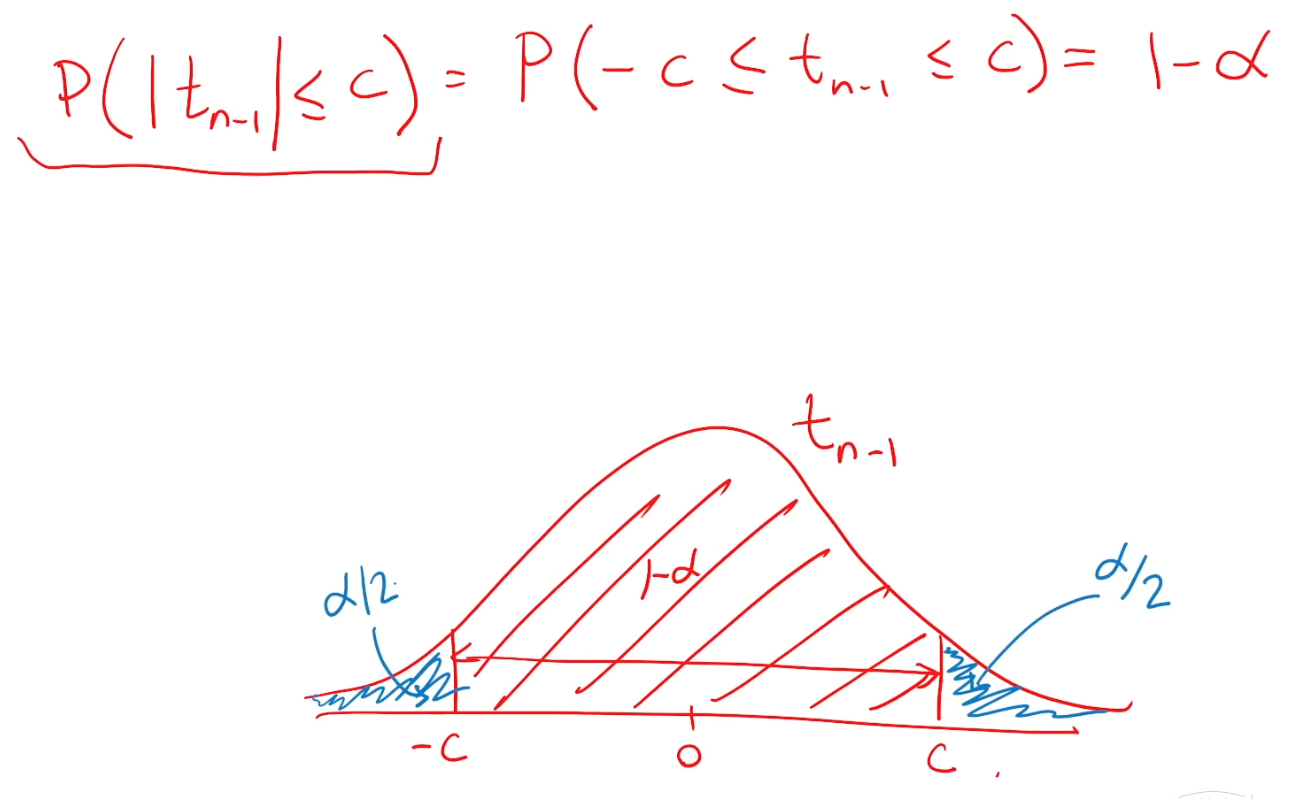 P(|t_{n-1}| ≤ c) = P(-c ≤ t_{n-1} ≤ c) = 1-α
t_{n-1}
1-α
α/2
α/2
-c
0
c